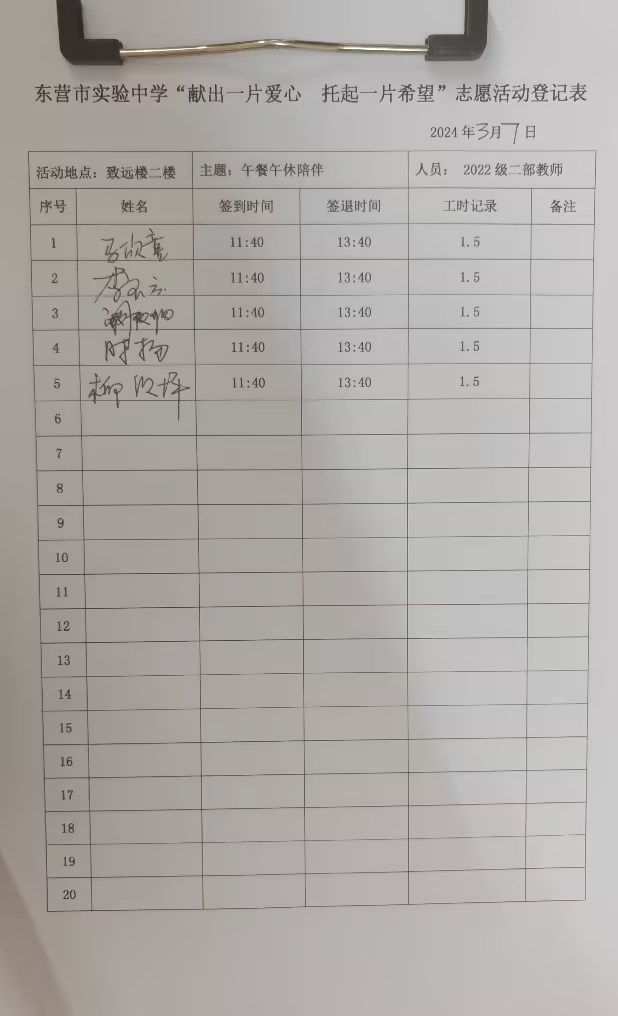 东营市实验中学“献出一片爱心 托起一片希望”志愿活动登记表
2024年3月7日
活动地点：致远楼二楼 主题：午餐午休陪伴 人员： 2022级二部教师
序号 姓名 签到时间 签退时间 工时记录 备注
1 11:40 13:40 1.5
2 11:40 13:40 1.5
3 11:40 13:40 1.5
4 11:40 13:40 1.5
5 11:40 13:40 1.5
6
7
8
9
10
11
12
13
14
15
16
17
18
19
20